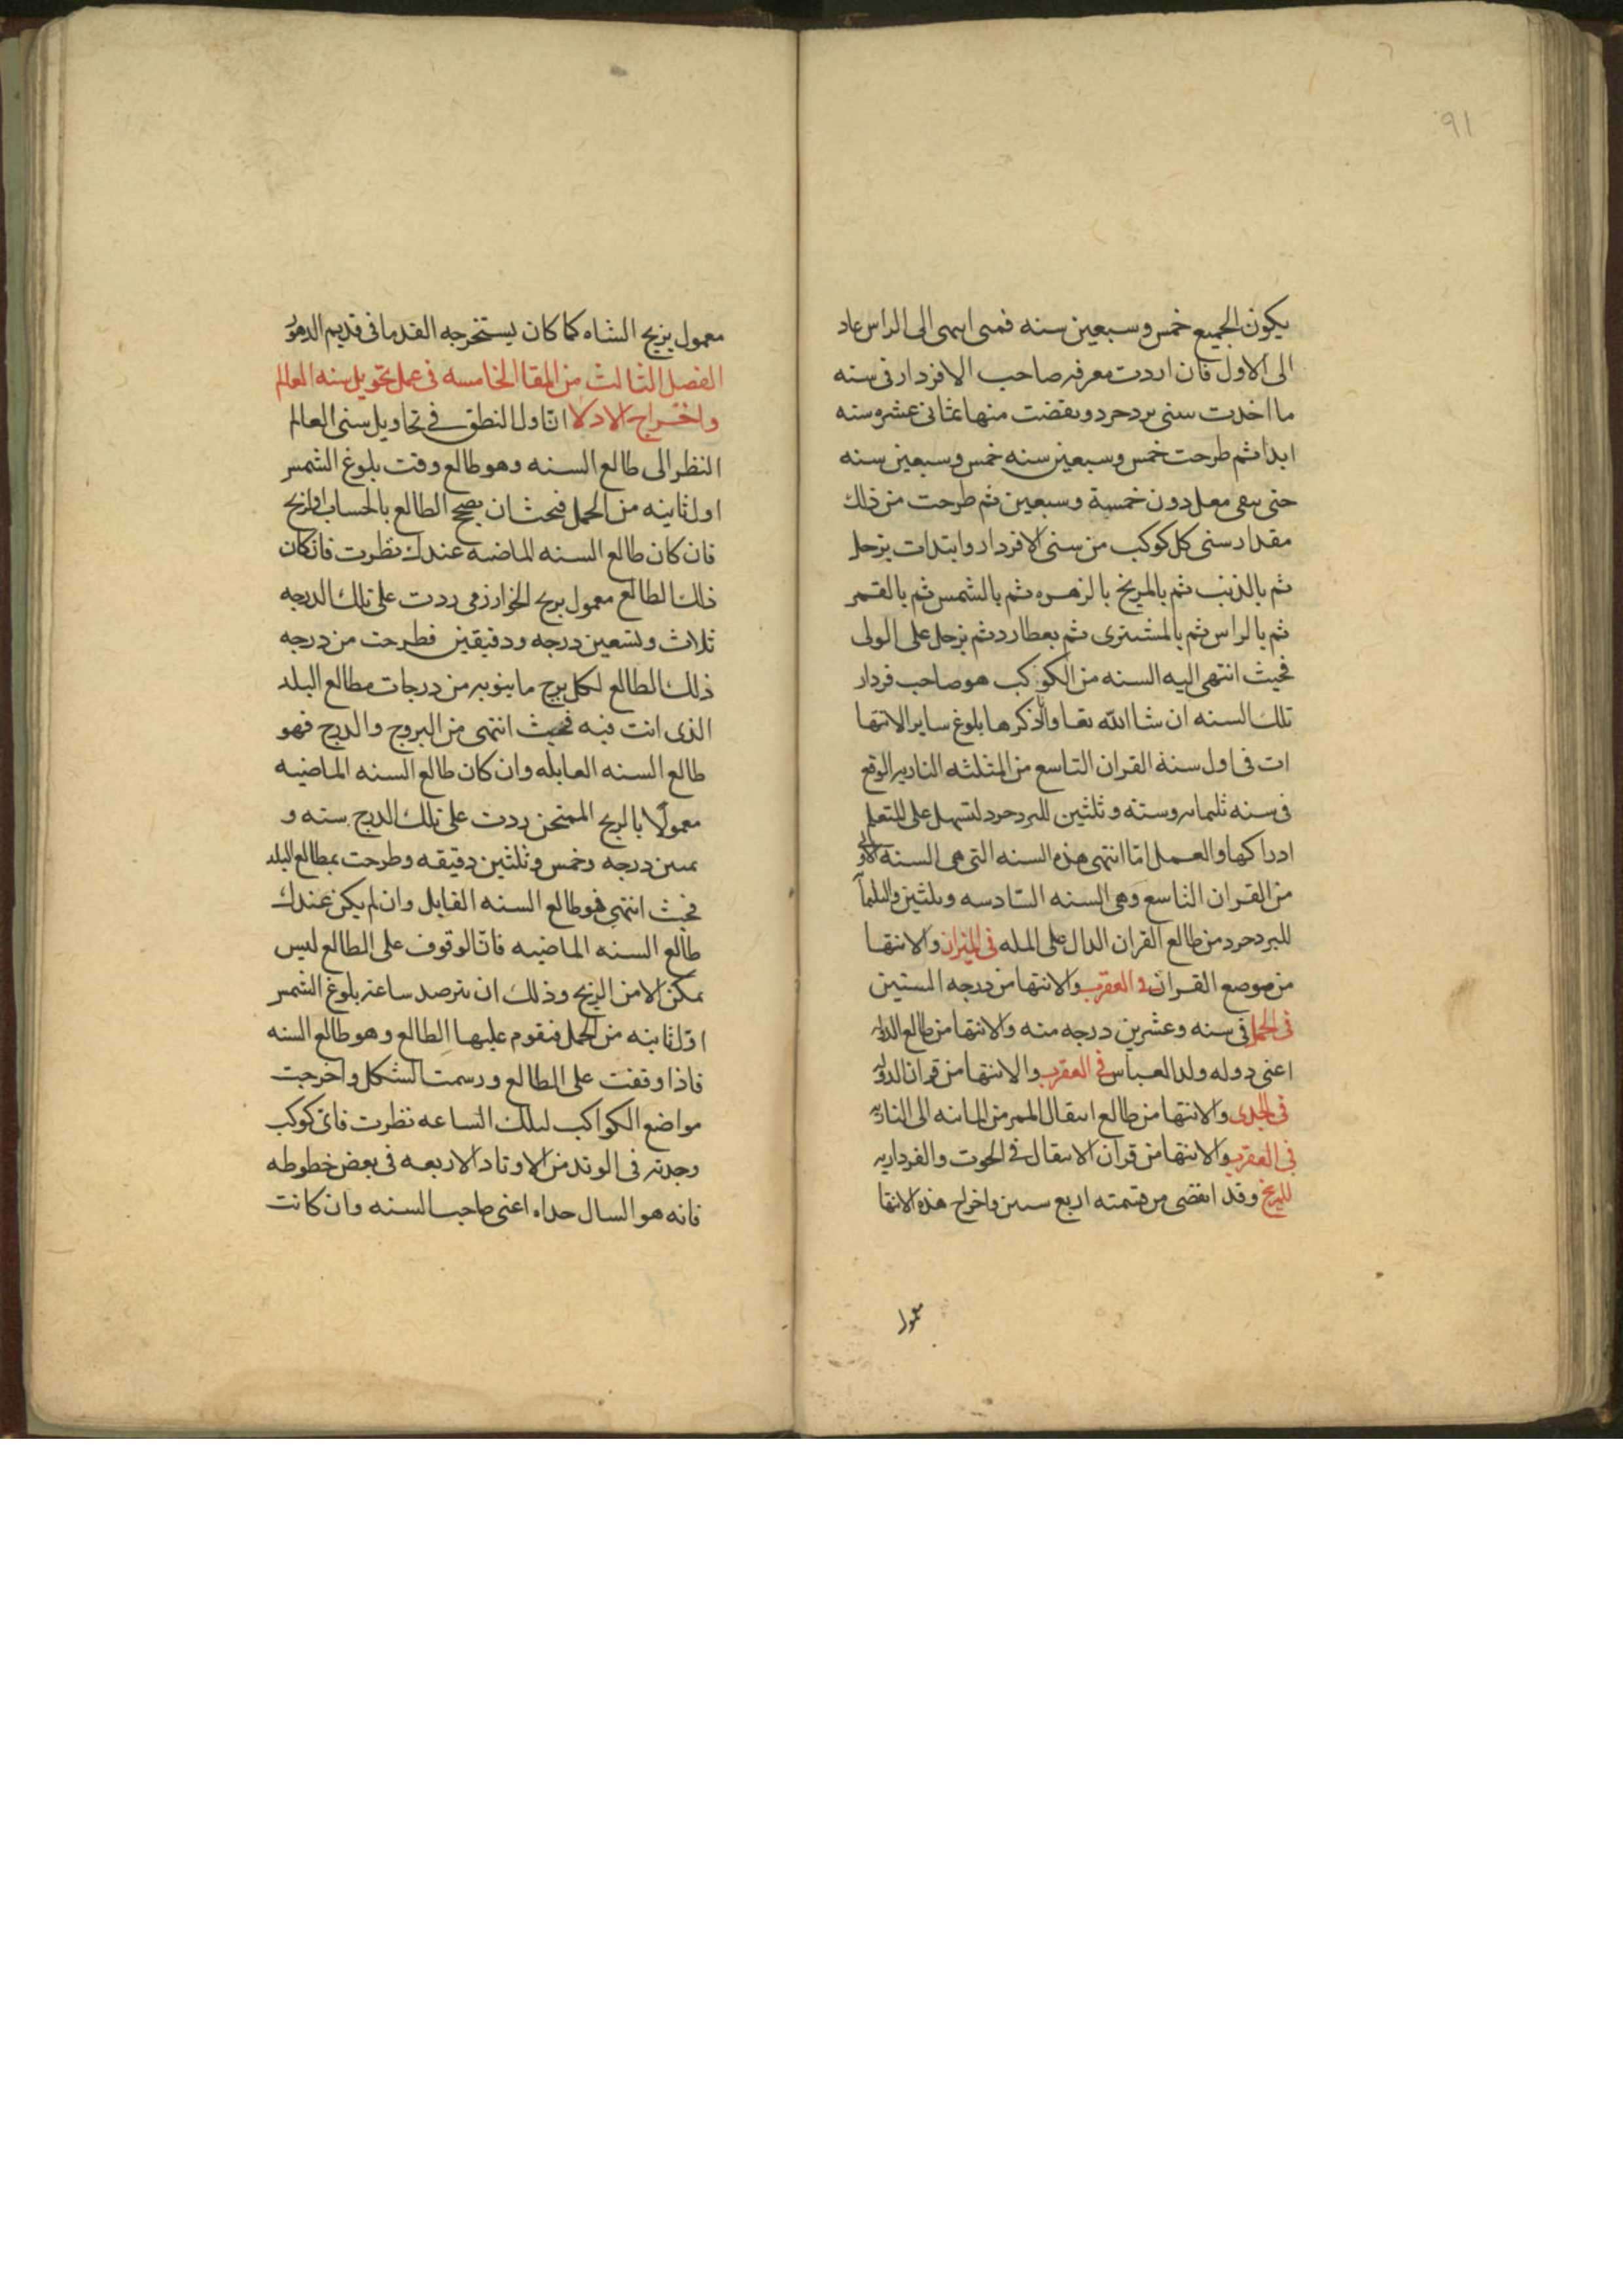 ٩١
يكون الجميع خمس وسبعين سنه فمتى انتهى الى الراس عاد
الى الاول فان اردت معرفه صاحب الافردار فى سنه
ما اخدت سنى يردجرد ونقصت منها ثمانى عشره سنه
ابدا ثم طرحت خمس وسبعين سنه خمس وسبعين سنه
حتى يبقى معك دون خمسة وسبعين ثم طرحت من ذلك
مقدار سنى كل كوكب من سنى الافردار وابتدات بزحل
ثم بالذنب ثم بالمريخ بالزهره ثم بالشمس ثم بالقمر
ثم بالراس ثم بالمشترى ثم بعطارد ثم بزحل على الولى
فحيث انتهى اليه السنه من الكوكب هو صاحب فردار
تلك السنه ان شا الله تعا وانا ذكرها بلوغ ساير الانتها
ات فى اول سنة القران التاسع من المثلثه الناريه الوقع
فى سنه ثلثمايه وسته وثلثين لليردجرد لتسهل على المتعلم
ادراكها والعمل اما انتهى هذه السنه التى هى السنه الاولى
من القران التاسع وهى السنه السادسه وثلثين والثلثمآ
لليردجرد من طالع القران الدال على المله فى الميزان والانتها
من موضع القران فى العقرب والانتها من درجه المستين
فى الحمل فى سنه وعشرين درجه منه والانتها من طالع الدوله
اعنى دوله ولد العباس فى العقرب والانتها من قران الدوله
فى الجدى والانتها من طالع انتقال الممر من المائيه الى الناريه
فى العقرب والانتها من قران الانتقال فى الحوت والفرداريه
للمريخ وقد انقضى من قسمته اربع سنين واخراج هذه الانتها
معمول
معمول بزيج الشاه كما كان يستخرجه القدما فى قديم الدهور
الفصل الثالث من المقا الخامسه فى عمل تحويل سنه العالم
واخراج الادلا ان اول النطق فى تحاويل سنى العالم
النظر الى طالع السنه وهو طالع وقت بلوغ الشمس
اول ثانيه من الحمل فيحث ان يصح الطالع بالحساب او الزيج
فان كان طالع السنه الماضيه عندك نظرت فان كان
ذلك الطالع معمول بزيج الخوارزمى زدت على تلك الدرجه
ثلاث وتسعين درجه ودقيقتين فطرحت من درجه
ذلك الطالع لكل برج ما ينوبه من درجات مطالع البلد
الذى انت فيه فحيث انتهى من البروج والدرج فهو
طالع السنه القابله وان كان طالع السنه الماضيه
معمولًا بالزيج الممتحن زدت على تلك الدرج سته و
ثمنين درجه وخمس وثلثين دقيقه وطرحت بمطالع البلد
فحيث انتهى فهو طالع السنه القابل وان لم يكن عندك
طالع السنه الماضيه فان الوقوف على الطالع ليس
يمكن الا من الزيج وذلك ان يترصد ساعه بلوغ الشمس
اول ثانيه من الحمل فيقوم عليها الطالع وهو طالع السنه
فاذا وقفت على الطالع ورسمت الشكل واخرجت
مواضع الكواكب لتلك الساعه نظرت فاى كوكب
وجدته فى الوتد من الاوتاد الاربعه فى بعض خطوطه
فانه هو السال حداه اعنى صاحب السنه وان كانت